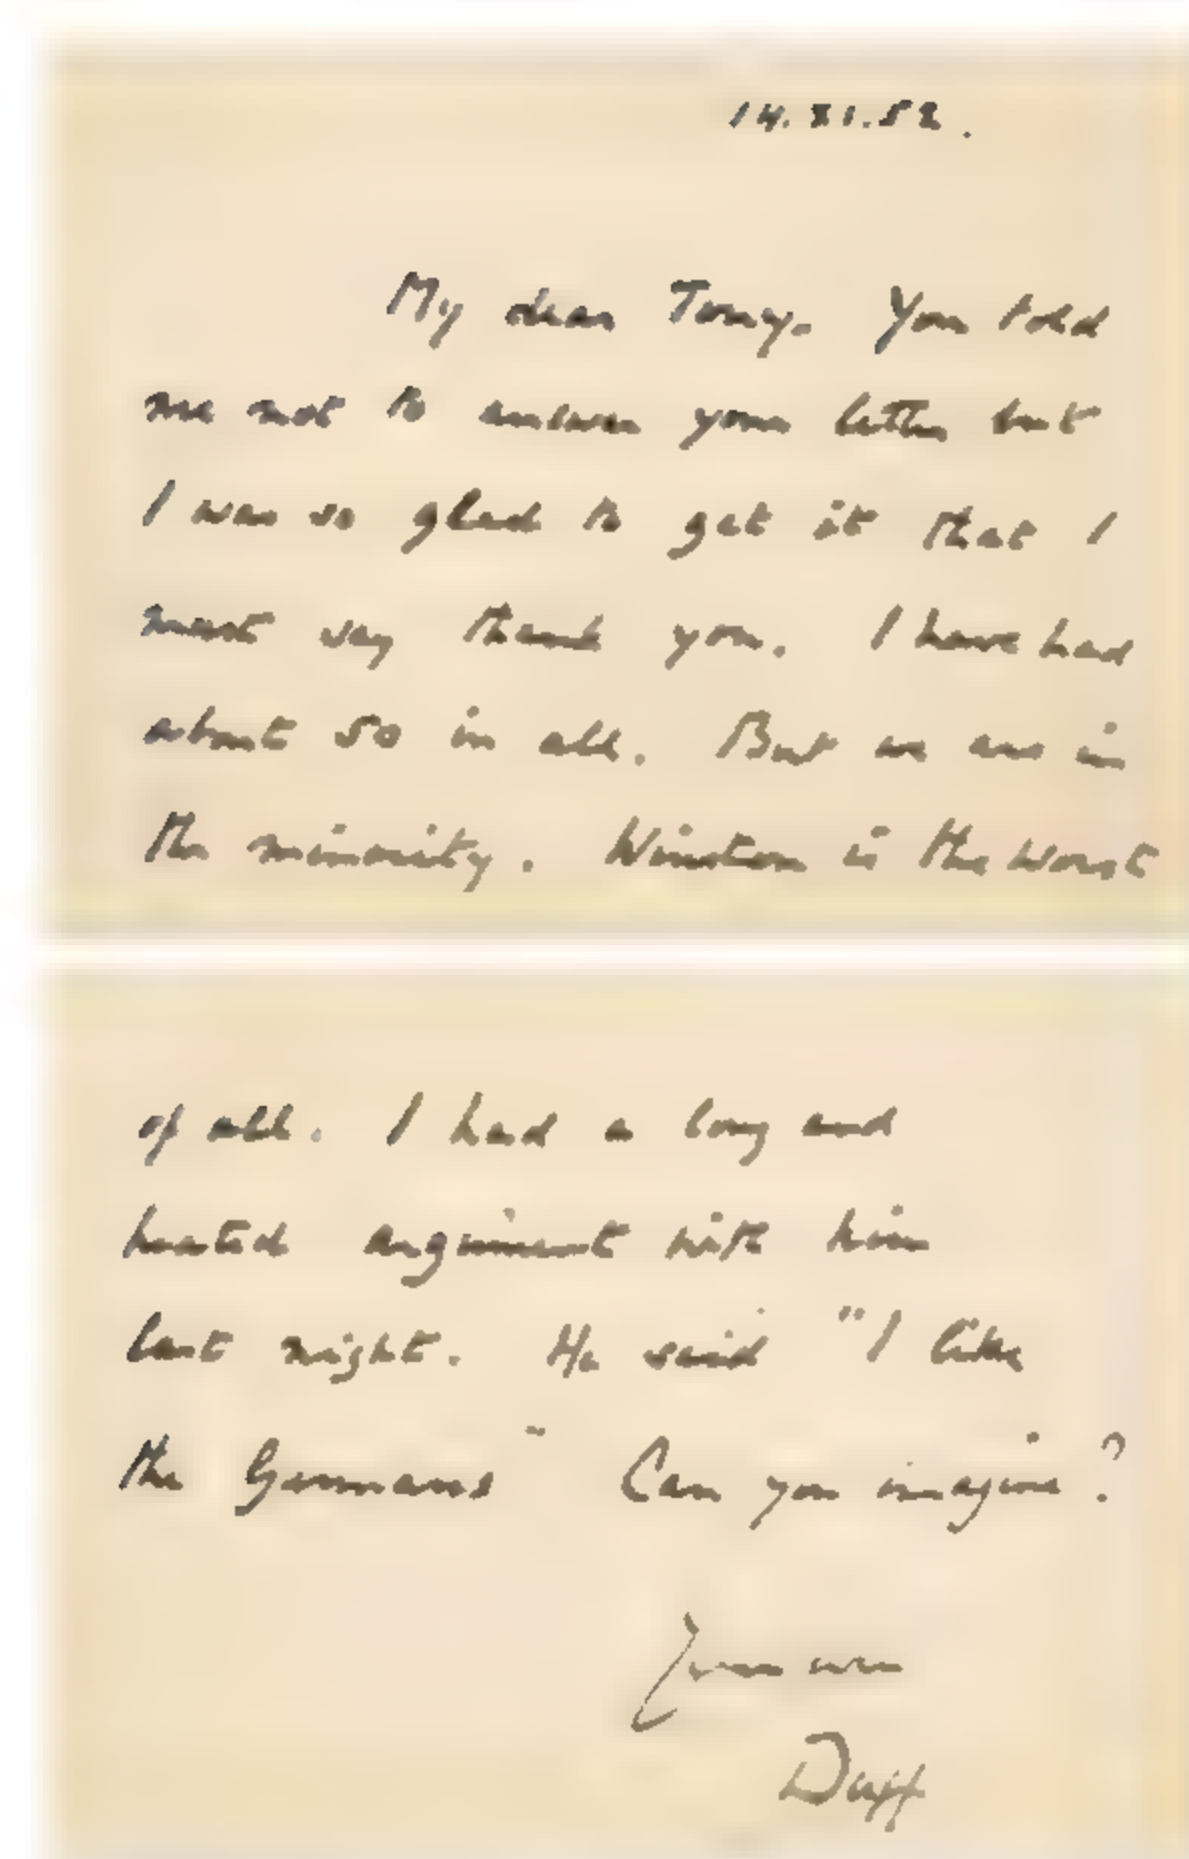 14.XI.52.
My dear Tony. You told
me not to answer your letter but
I was so glad to get it that I
must say thank you. I have had
about 50 in all. But we are in
the minority. Winston is the worst
of all. I had a long and
heated argument with him
last night. He said "I like
the Germans" Can you imagine?
Yours ever
Duff